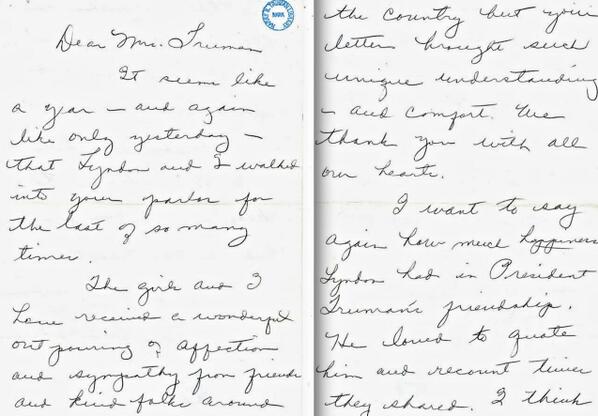 Dear Mrs. Truman
It seems like
a year — and again
like only yesterday —
that Lyndon and I walked
into your parlor for
the last of so many
times.
The girls and I
have received a wonderful
outpouring of affection
and sympathy from friends
and kind folks around
the country but your
letter brought such
unique understanding
- and comfort. We
thank you with all
our hearts.
I want to say
again how much happiness
Lyndon had in President
Truman's friendship.
He loved to quote
him and recount times
they shared. I think